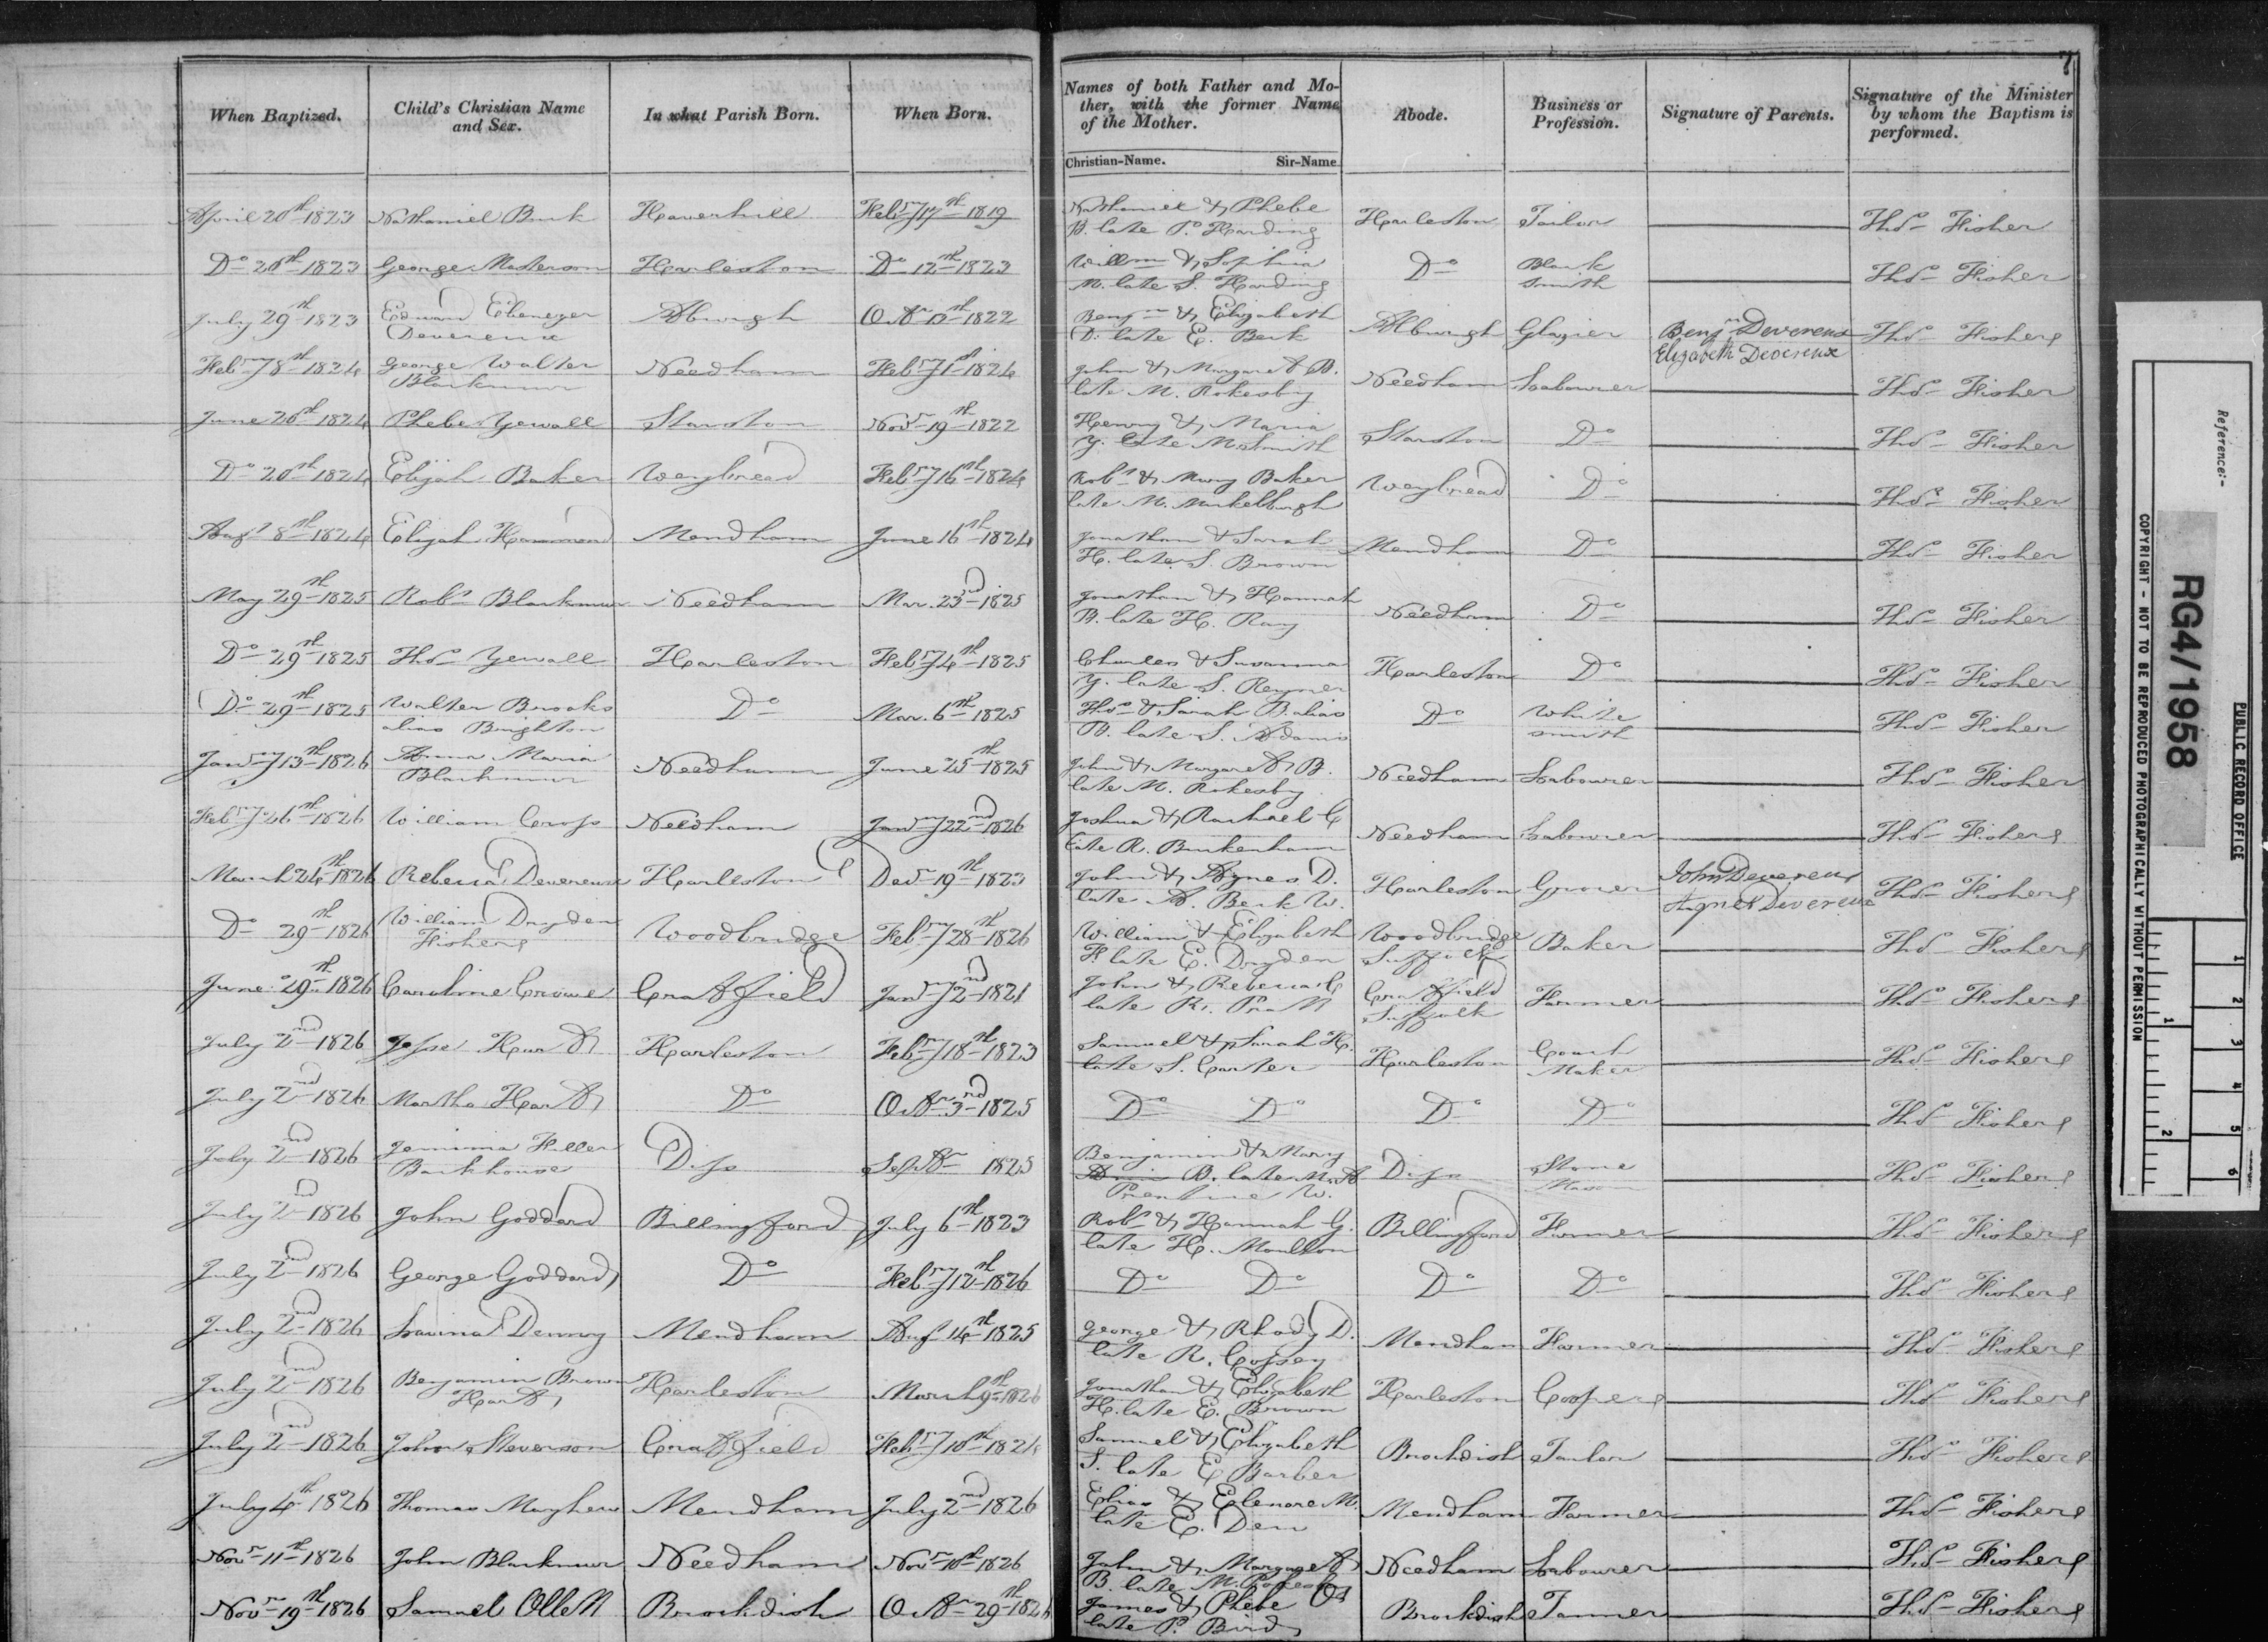 7
When Baptized.
Child's Christian Name
and Sex.
In what Parish Born.
When Born.
Names of both Father and Mo-
ther, with the former Name
of the Mother.
Christian-Name. Sir-Name
Abode.
Business or
Profession.
Signature of Parents.
Signature of the Minister
by whom the Baptism is
performed.
April 20th 1823 Nathaniel Haverhill Feby 17th 1819 Nathaniel & Phebe
B. late P. Harding Harleston Tailor Thos Fisher
Do 20th 1823 George Masterson Harleston Do 12th 1823 Willm & Sophia
M. late S. Harding Do Black
smith Thos Fisher
July 29th 1823 Edward Ebenezer
Devereux Alburgh Octr 1822 Benjn & Elizabeth
D. late E. Beck Alburgh Glazier Benjn Devereux
Elizabeth Devereux Thos Fisher
Feby 8th 1824 George Walter
Blackmur Needham Feby 1st 1824 John & Margaret B.
late M. Rokesby Needham Labourer Thos Fisher
June 20th 1824 Phebe Yewall Starston Novr 19th 1822 Henry & Maria
Y. late M. Smith Starston Do Thos Fisher
Do 20th 1824 Elijah Baker Weybread Feby 16th 1824 Robt & Mary Baker
late M. Weybread Do Thos Fisher
Augt 8th 1824 Elijah Hammond Mendham June 16th 1824 Jonathan & Sarah
H. late S. Brown Mendham Do Thos Fisher
May 29th 1825 Robt Blackmur Needham Mar. 23d 1825 Jonathan & Hannah
B. late H. Ray Needham Do Thos Fisher
Do 29th 1825 Thos Yewall Harleston Feby 4th 1825 Charles & Susanna
Y. late S. Reyner Harleston Do Thos Fisher
Do 29th 1825 Walter Brooks
alias Brighton Do Mar. 6th 1825 Thos & Sarah B. alias
B. late S. Adams Do White
smith Thos Fisher
Jany 13th 1826 Anna Maria
Blackmur Needham June 25th 1825 John & Margaret B.
late M. Rokesby Needham Labourer Thos Fisher
Feby 26th 1826 William Cross Needham Jany 22nd 1826 Joshua & Rachael C
late R. Burkenham Needham Labourer Thos Fisher
March 24th 1826 Rebecca Devereux Harleston Decr 19th 1823 John & Agnes D.
late A. Beck W. Harleston Grocer John Devereux
Agnes Devereux Thos Fisher
Do 29th 1826 William Dryden
Fisher Woodbridge Feby 28th 1826 William & Elizabeth
F. late E. Dryden Woodbridge
Suffolk Baker Thos Fisher
June 29th 1826 Caroline Crowe Cratfield Jany 2nd 1821 John & Rebecca C
late R. Pratt Cratfield
Suffolk Farmer Thos Fisher
July 2nd 1826 Jesse Hart Harleston Feby 18th 1823 Samuel & Sarah H.
late S. Carter Harleston Coach
Maker Thos Fisher
July 2nd 1826 Martha Hart Do Octr 3rd 1825 Do Do Do Do Thos Fisher
July 2nd 1826 Jemima Fuller
Backhouse Diss Septr 1825 Benjamin & Mary
B. late M. A
Prentice W. Diss Stone
Mason Thos Fisher
July 2nd 1826 John Goddard Billingford July 6th 1823 Robt & Hannah G.
late H. Moulton Billingford Farmer Thos Fisher
July 2nd 1826 George Goddard Do Feby 12th 1826 Do Do Do Do Thos Fisher
July 2nd 1826 Lavina Denny Mendham Augt 14th 1825 George & Rhody D.
late R. Copsey Mendham Farmer Thos Fisher
July 2nd 1826 Benjamin Brown
Hart Harleston March 9th 1826 Jonathan & Elizabeth
H. late E. Brown Harleston Cooper Thos Fisher
July 2nd 1826 John Stevenson Cratfield Feby 10th 1824 Samuel & Elizabeth
S. late E Barber Brockdish Tailor Thos Fisher
July 4th 1826 Thomas Mayhew Mendham July 2nd 1826 Elias & Elenore M.
late E. Den Mendham Farmer Thos Fisher
Novr 11th 1826 John Blackmur Needham Novr 10th 1826 John & Margaret
B. late M. Rokesby Needham Labourer Thos Fisher
Novr 19th 1826 Samuel Ollett Brockdish Octr 29th 1826 James & Phebe O
late P. Bird Brockdish Tanner Thos Fisher
Reference:-
RG4/1958
PUBLIC RECORD OFFICE
COPYRIGHT - NOT TO BE REPRODUCED PHOTOGRAPHICALLY WITHOUT PERMISSION
1 2 3 4 5 6
1 2